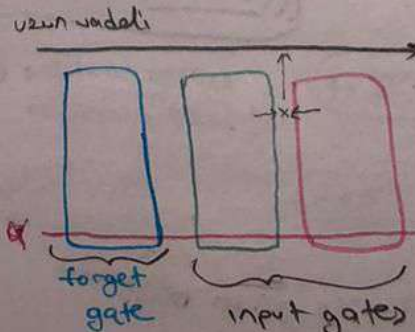 uzun vadeli
x
forget
gate
input gates